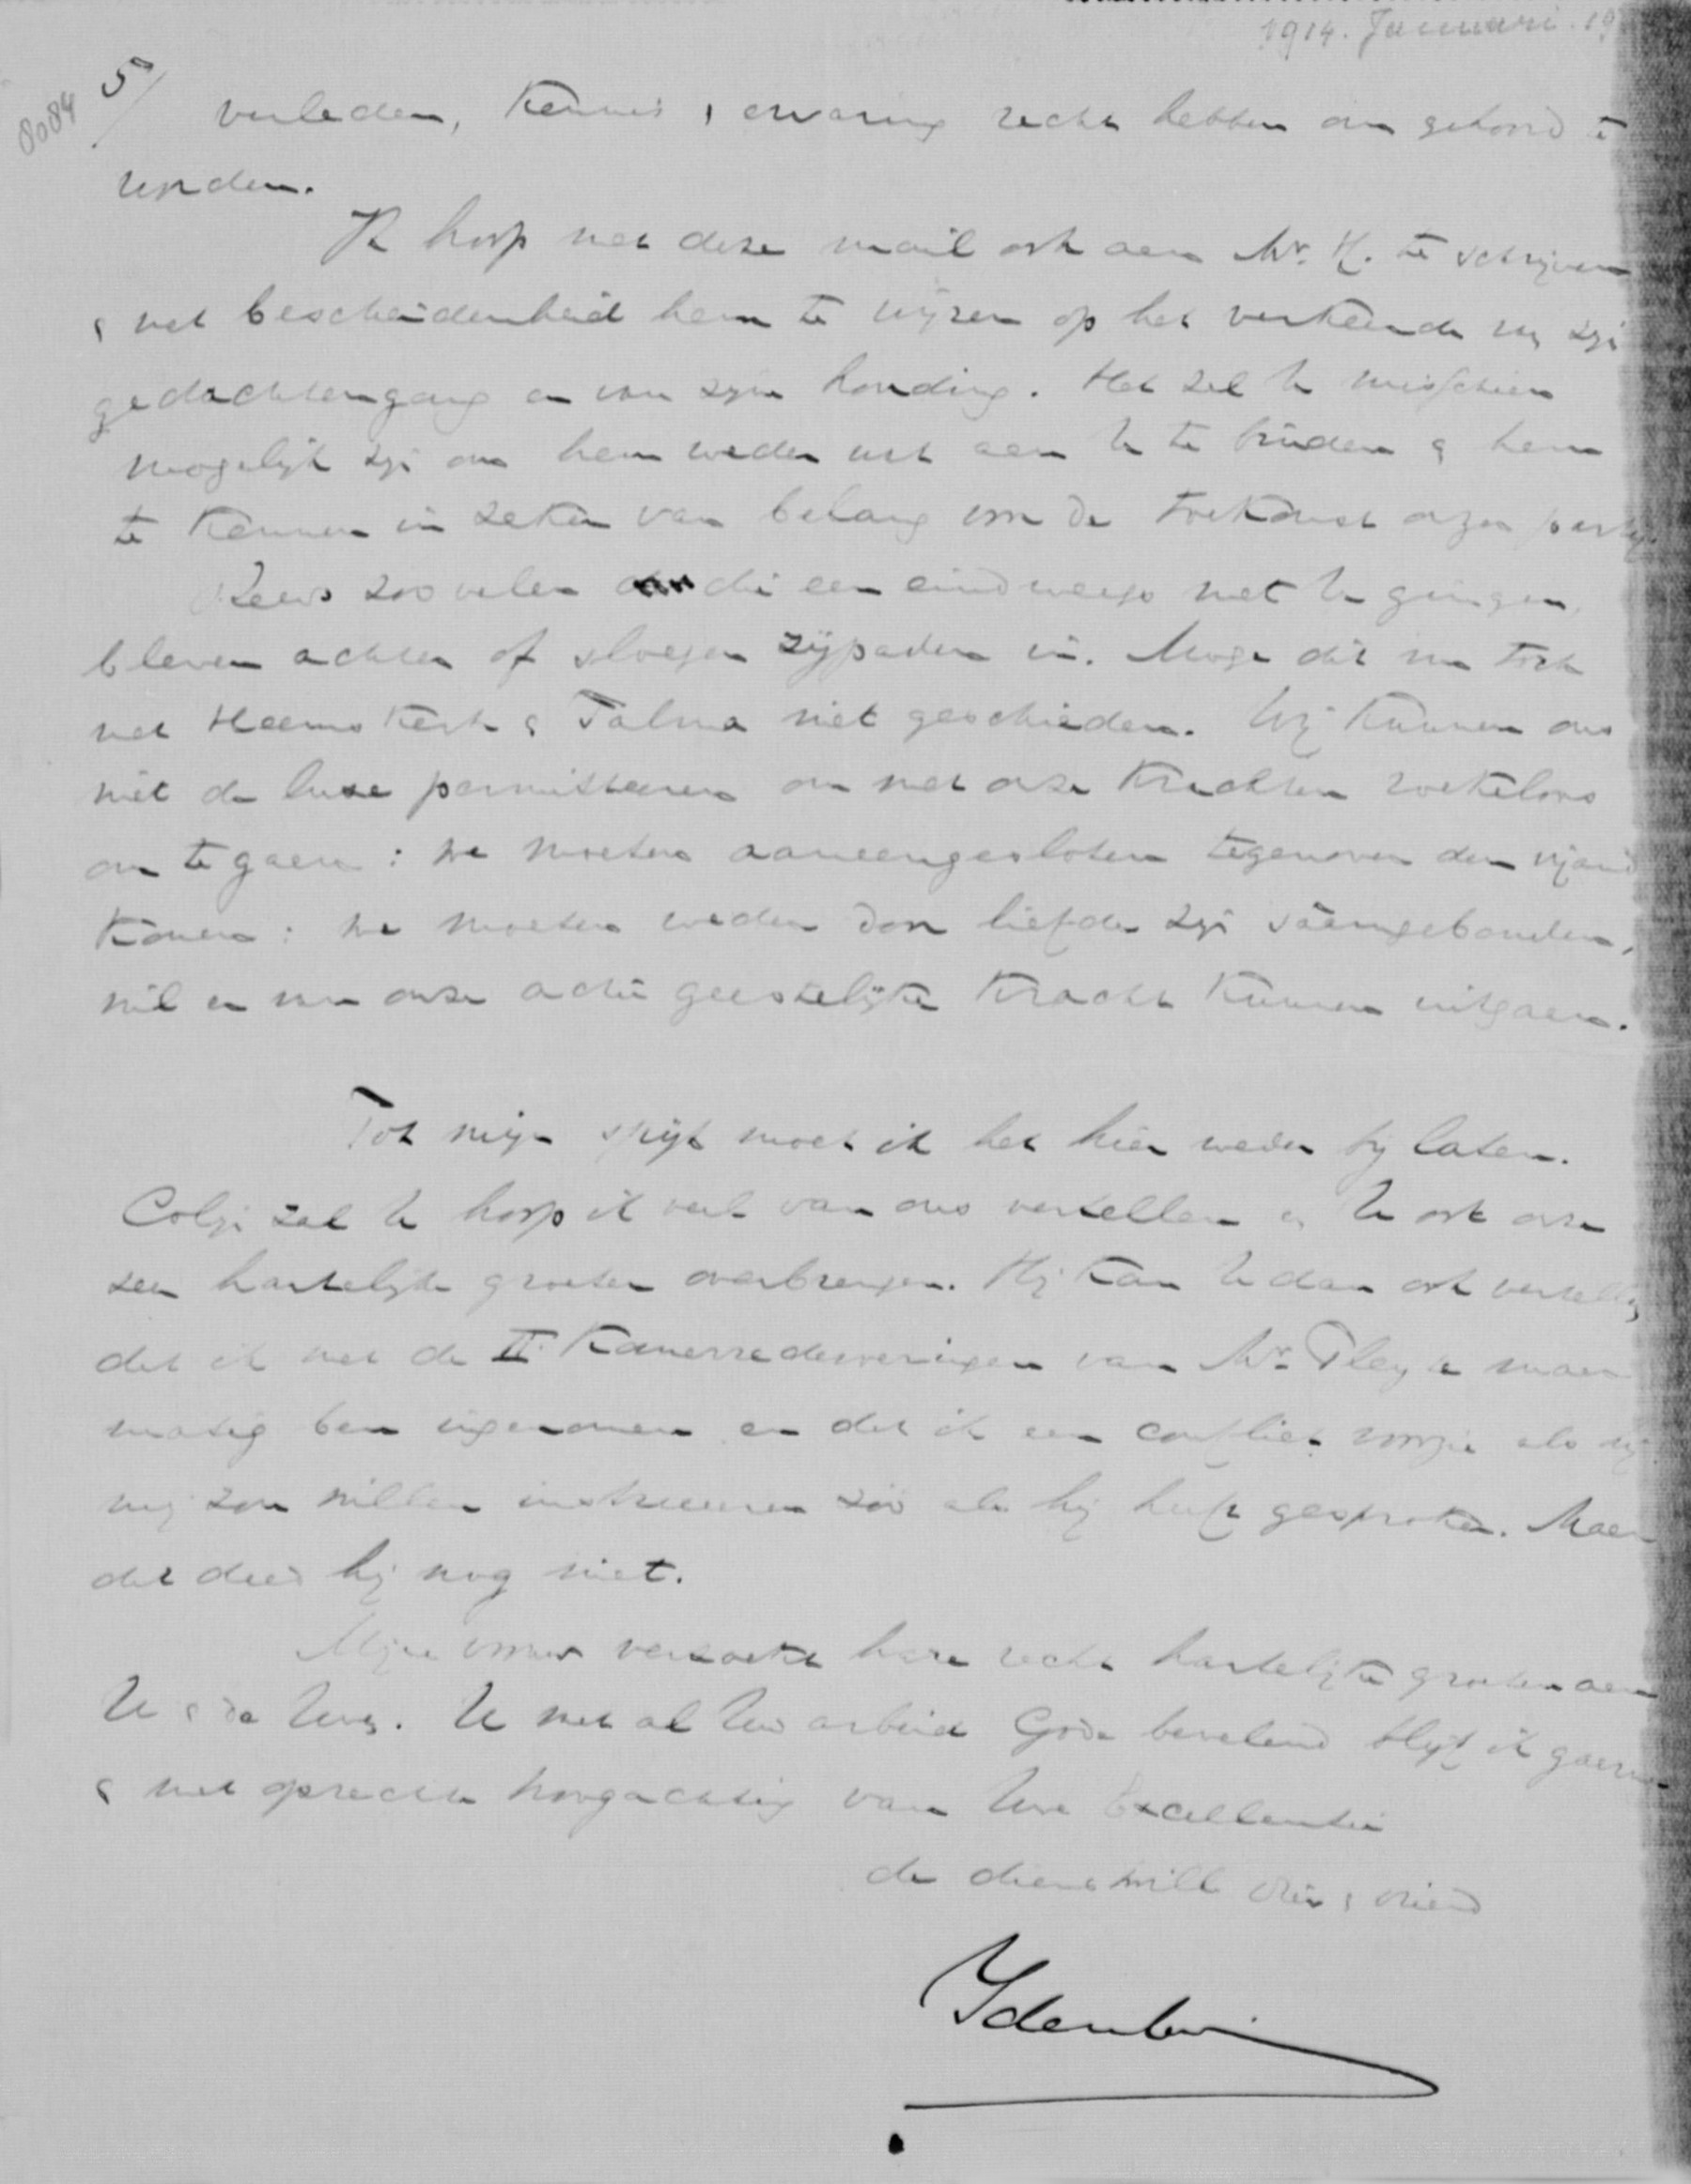 1914. Januari. 19
8084
5/ verleden, kennis & ervaring recht hebben om gehoord te
worden.
Ik hoop met deze mail ook aan Mr. H. te schrijven
& met bescheidenheid hem te wijzen op het verkeerde in zijn
gedachtengang en van zijn houding. Het zal U misschien
mogelijk zijn om hem weder wat aan U te binden & hem
te kennen in zaken van belang voor de toekomst onzer partij.
Reeds zoo velen die een eindweegs met U gingen,
bleven achter of sloegen zijpaden in. Moge dit nu toch
met Heemskerk & Talma niet geschieden. Wij kunnen ons
niet de luxe permitteeren om met onze krachten roekeloos
om te gaan: we moeten aaneengesloten tegenover den vijand
komen: we moeten weder door liefde zijn saamgebonden,
wil er van onze actie geestelijke kracht kunnen uitgaan.
Tot mijn spijt moet ik het hier weder bij laten.
Colijn zal U hoop ik veel van ons vertellen en U ook onze
zeer hartelijke groeten overbrengen. Hij kan U dan ook vertellen
dat ik met de II Kamerredevoeringen van Mr. Pleyte maar
matig ben ingenomen en dat ik een conflict voorzie als hij
mij zou willen instrueeren zoo als hij heeft gesproken. Maar
dat deed hij nog niet.
Mijne vrouw verzoekt hare recht hartelijke groeten aan
U & de Uwen. U met al Uw arbeid Gode bevelend blijf ik gaarne
& met oprechte hoogachting van Uwe Excellentie
de dienstwill. dien. & vriend
Idenburg